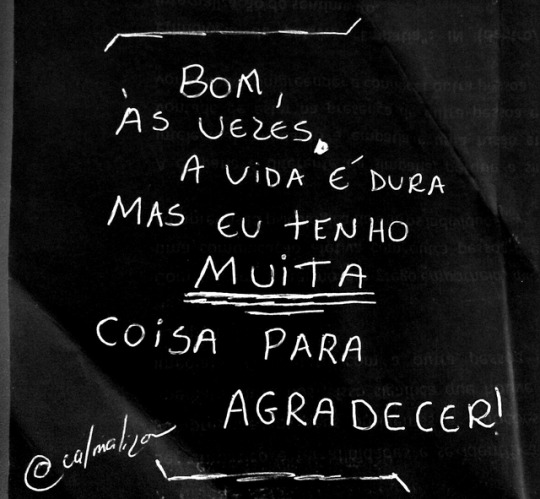 BOM,
ÀS VEZES,
A ViDA É DURA
MAS EU TENHO
MUiTA
COiSA PARA
AGRADECER!
@calmalizar